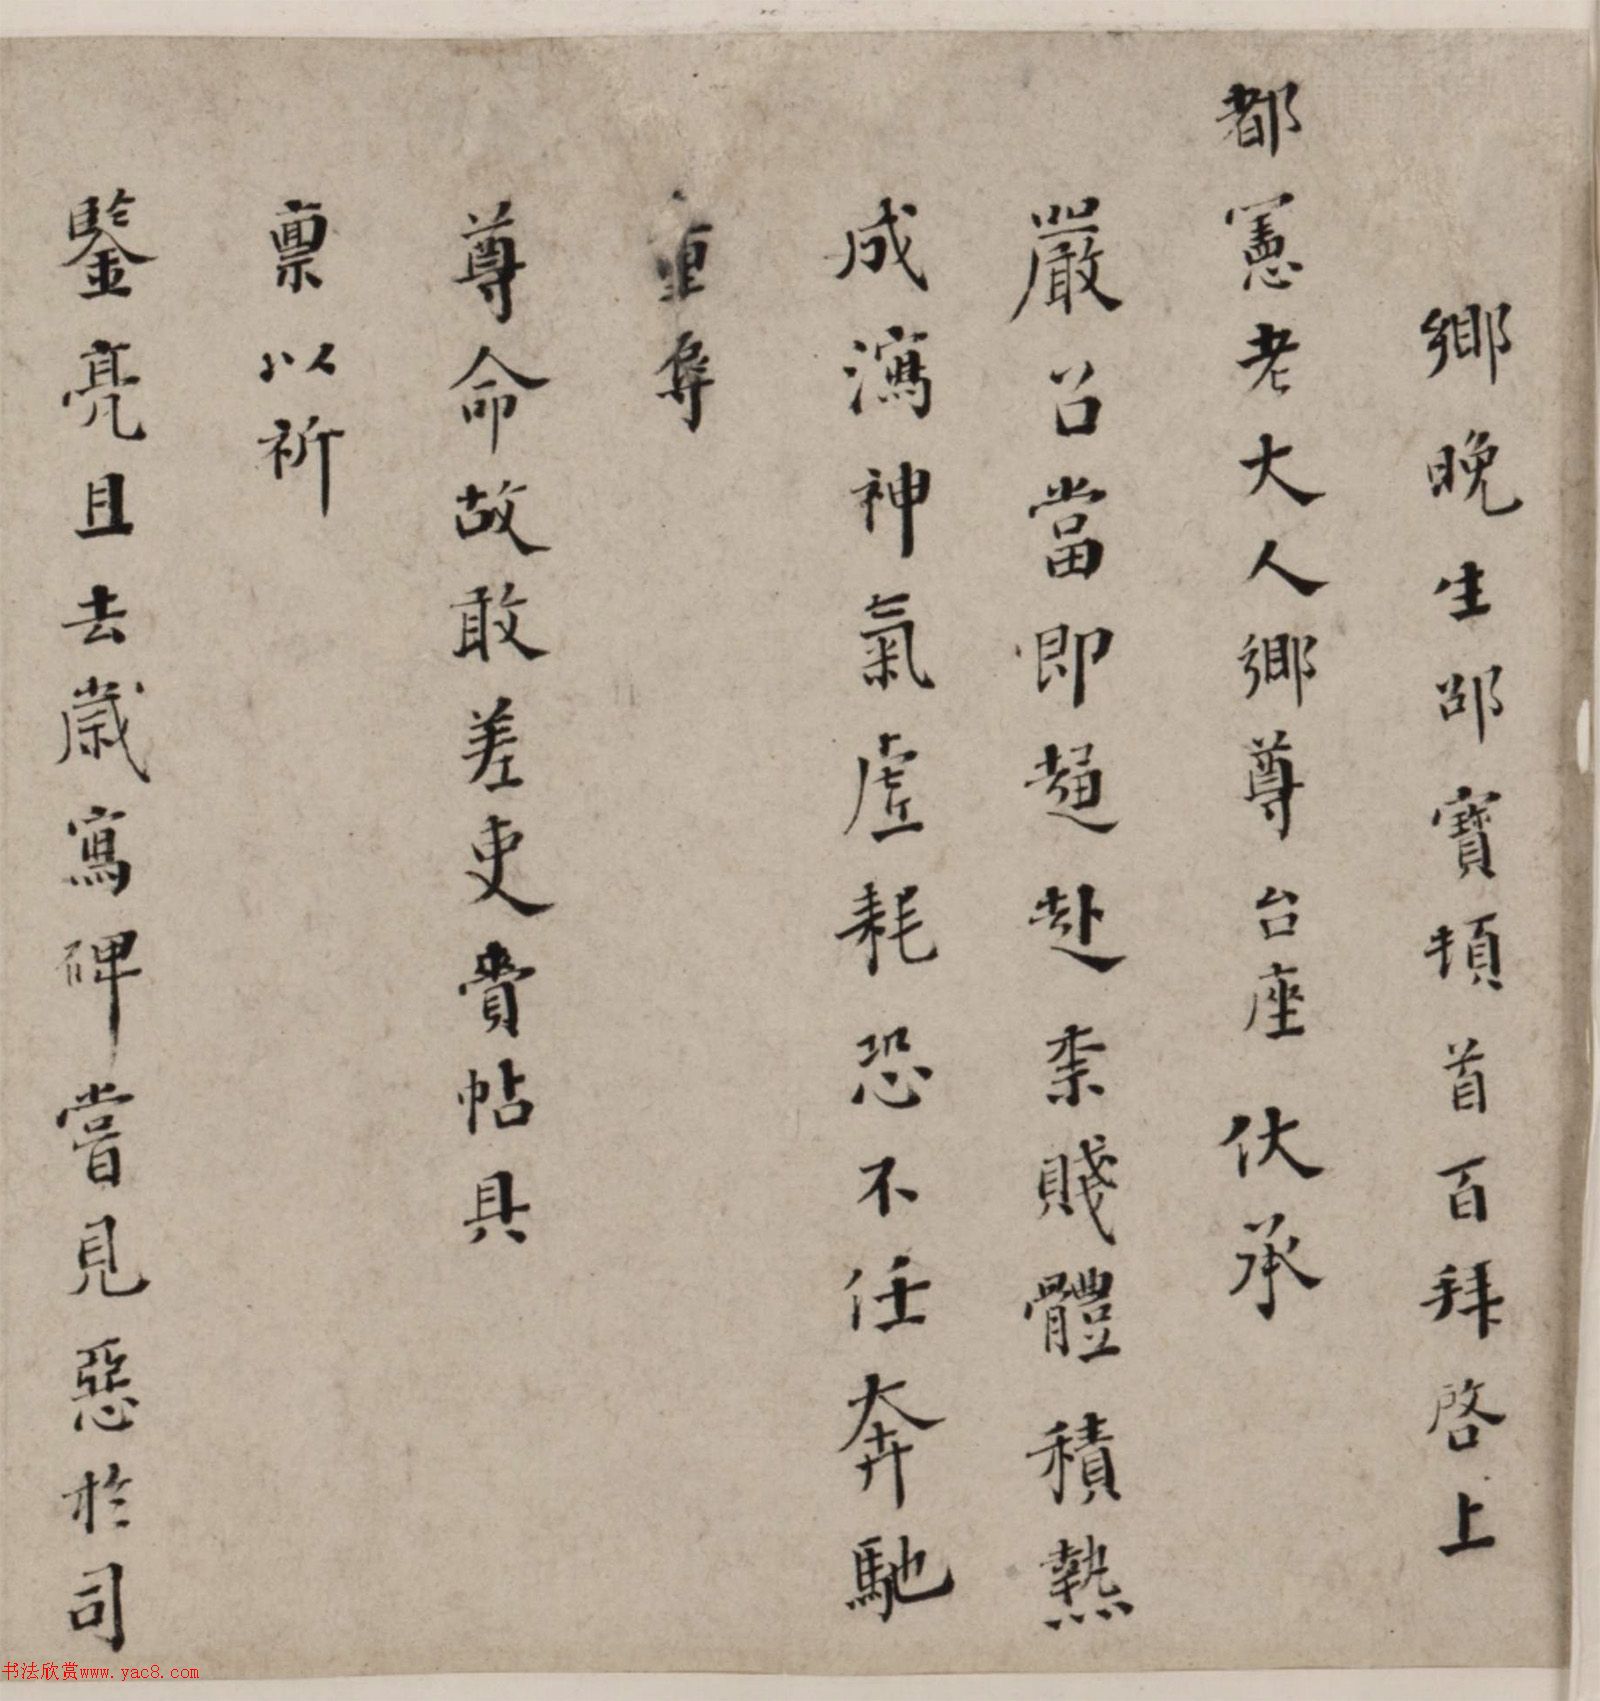 鄉晚生邵寶頓首百拜啓上
都憲老大人鄉尊台座伏承
嚴召當即趨赴柰賤體積熱
成瀉神氣虛耗恐不任奔馳
重辱
尊命故敢差吏賫帖具
稟以祈
鑒亮且去歲寫碑嘗見惡於司
书法欣赏www.yac8.com